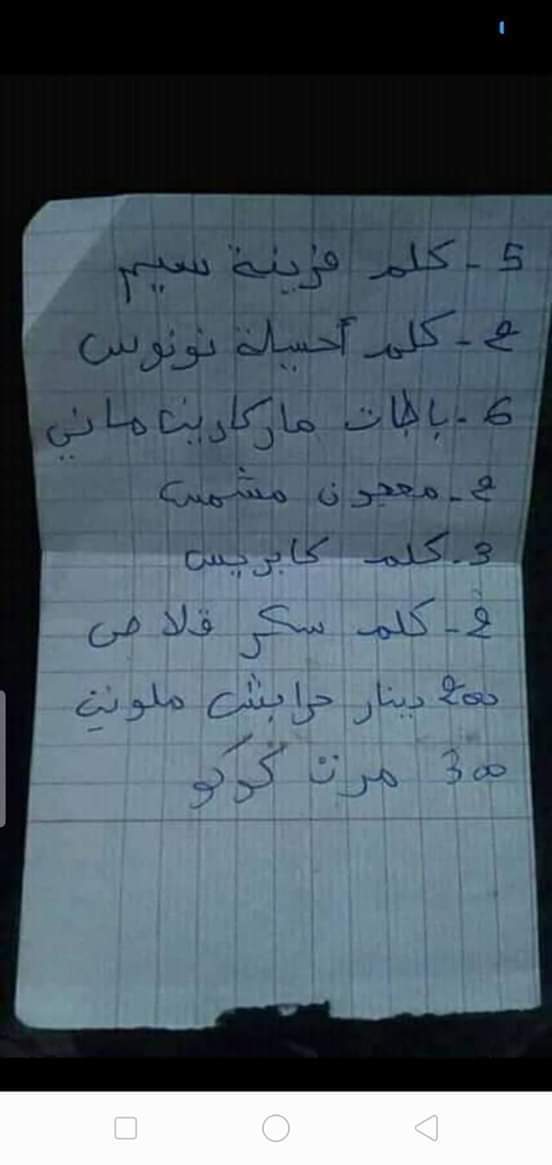 5 - كلم فرينة سيم
2 - كلم أحسيلة نونوس
6 - باطات ماركارين ماني
2 - معجون مشمش
3 - كلم كابريس
2 - كلم سكر قلاص
200 دينار حرابش ملونين
300 مرت كوكو